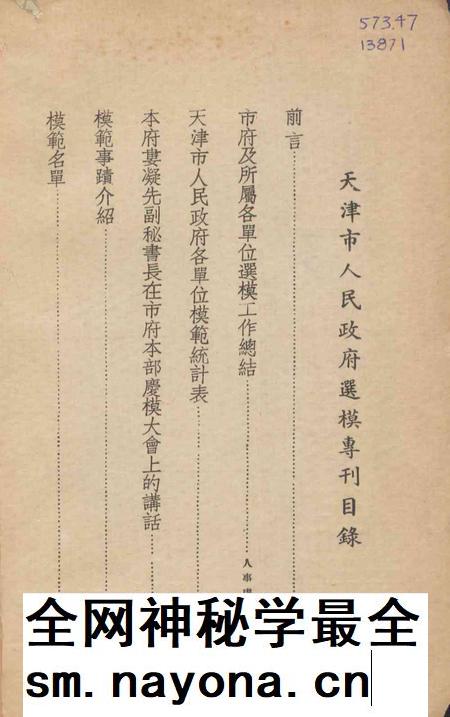 573.47
13871
天津市人民政府選模專刊目錄
前言
市府及所屬各單位選模工作總結
人事
天津市人民政府各單位模範統計表
本府婁凝先副秘書長在市府本部慶模大會上的講話
模範事蹟介紹
模範名單
全网神秘学最全
sm.nayona.cn